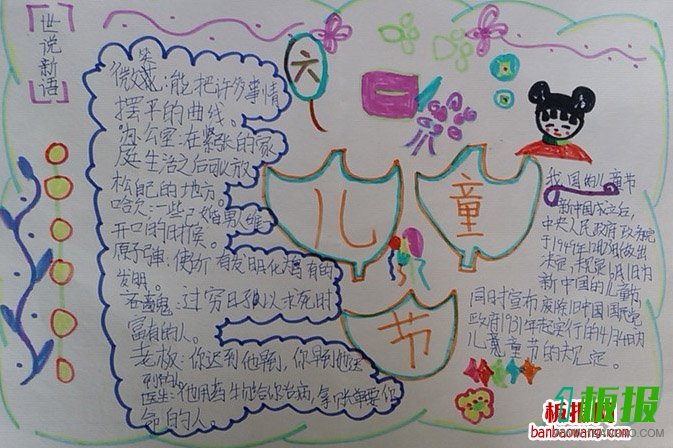 世说新语
微笑:能把许多事情
摆平的曲线。
办公室:在紧张的家
庭生活之后可以放
松自己的地方。
哈欠:一些已婚男人能
开口的时候。
原子弹:使所有发明化为有的
发明。
吝啬鬼:过穷日子以求死时
富有的人。
老板:你迟到他早到,你早到他迟
到的人
医生:他用药物给你治病,拿账单要你
命的人
六
儿
童
节
我国的儿童节
新中国成立后,
中央人民政府政务院
于1949年12月做出
决定,规定6月1日为
新中国的儿童节,
同时宣布废除旧中国国民党
政府1931年起实行的4月4日为
儿童节的规定。
板报网
banbaowang.com